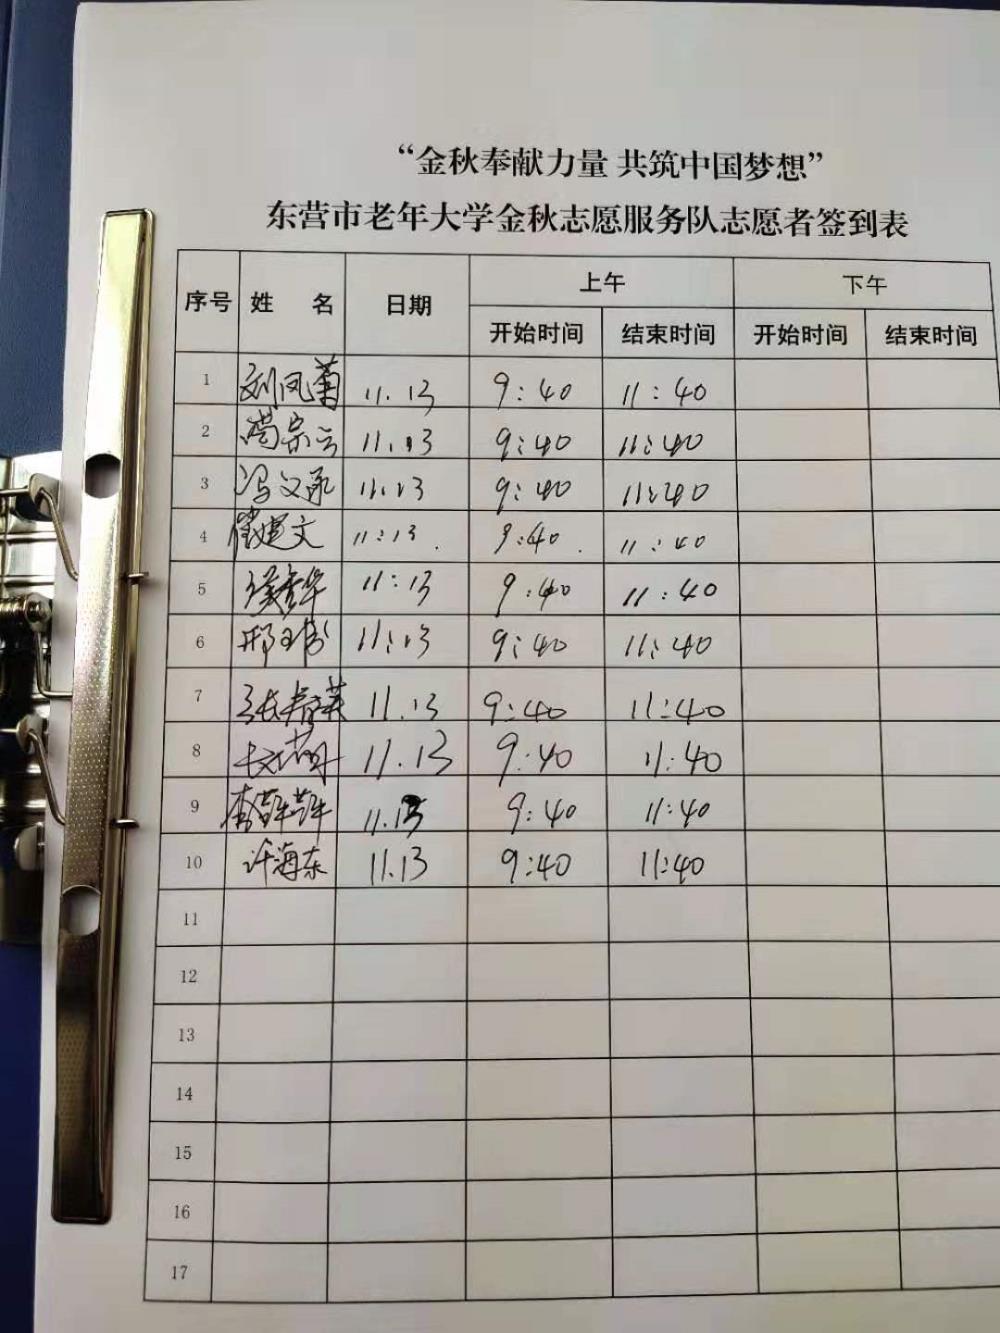 “金秋奉献力量 共筑中国梦想”
东营市老年大学金秋志愿服务队志愿者签到表
序号 姓 名 日期 上午 下午
开始时间 结束时间 开始时间 结束时间
1 刘凤菊 11.13 9:40 11:40
2 宗云 11.13 9:40 11:40
3 冯文 11.13 9:40 11:40
4 崔建文 11:13. 9:40. 11:40
5 华 11:13 9:40 11:40
6 邢玉 11:13 9:40 11:40
7 张春英 11.13 9:40 11:40
8 11.13 9:40 11:40
9 李 11.13 9:40 11:40
10 许海东 11.13 9:40 11:40
11
12
13
14
15
16
17